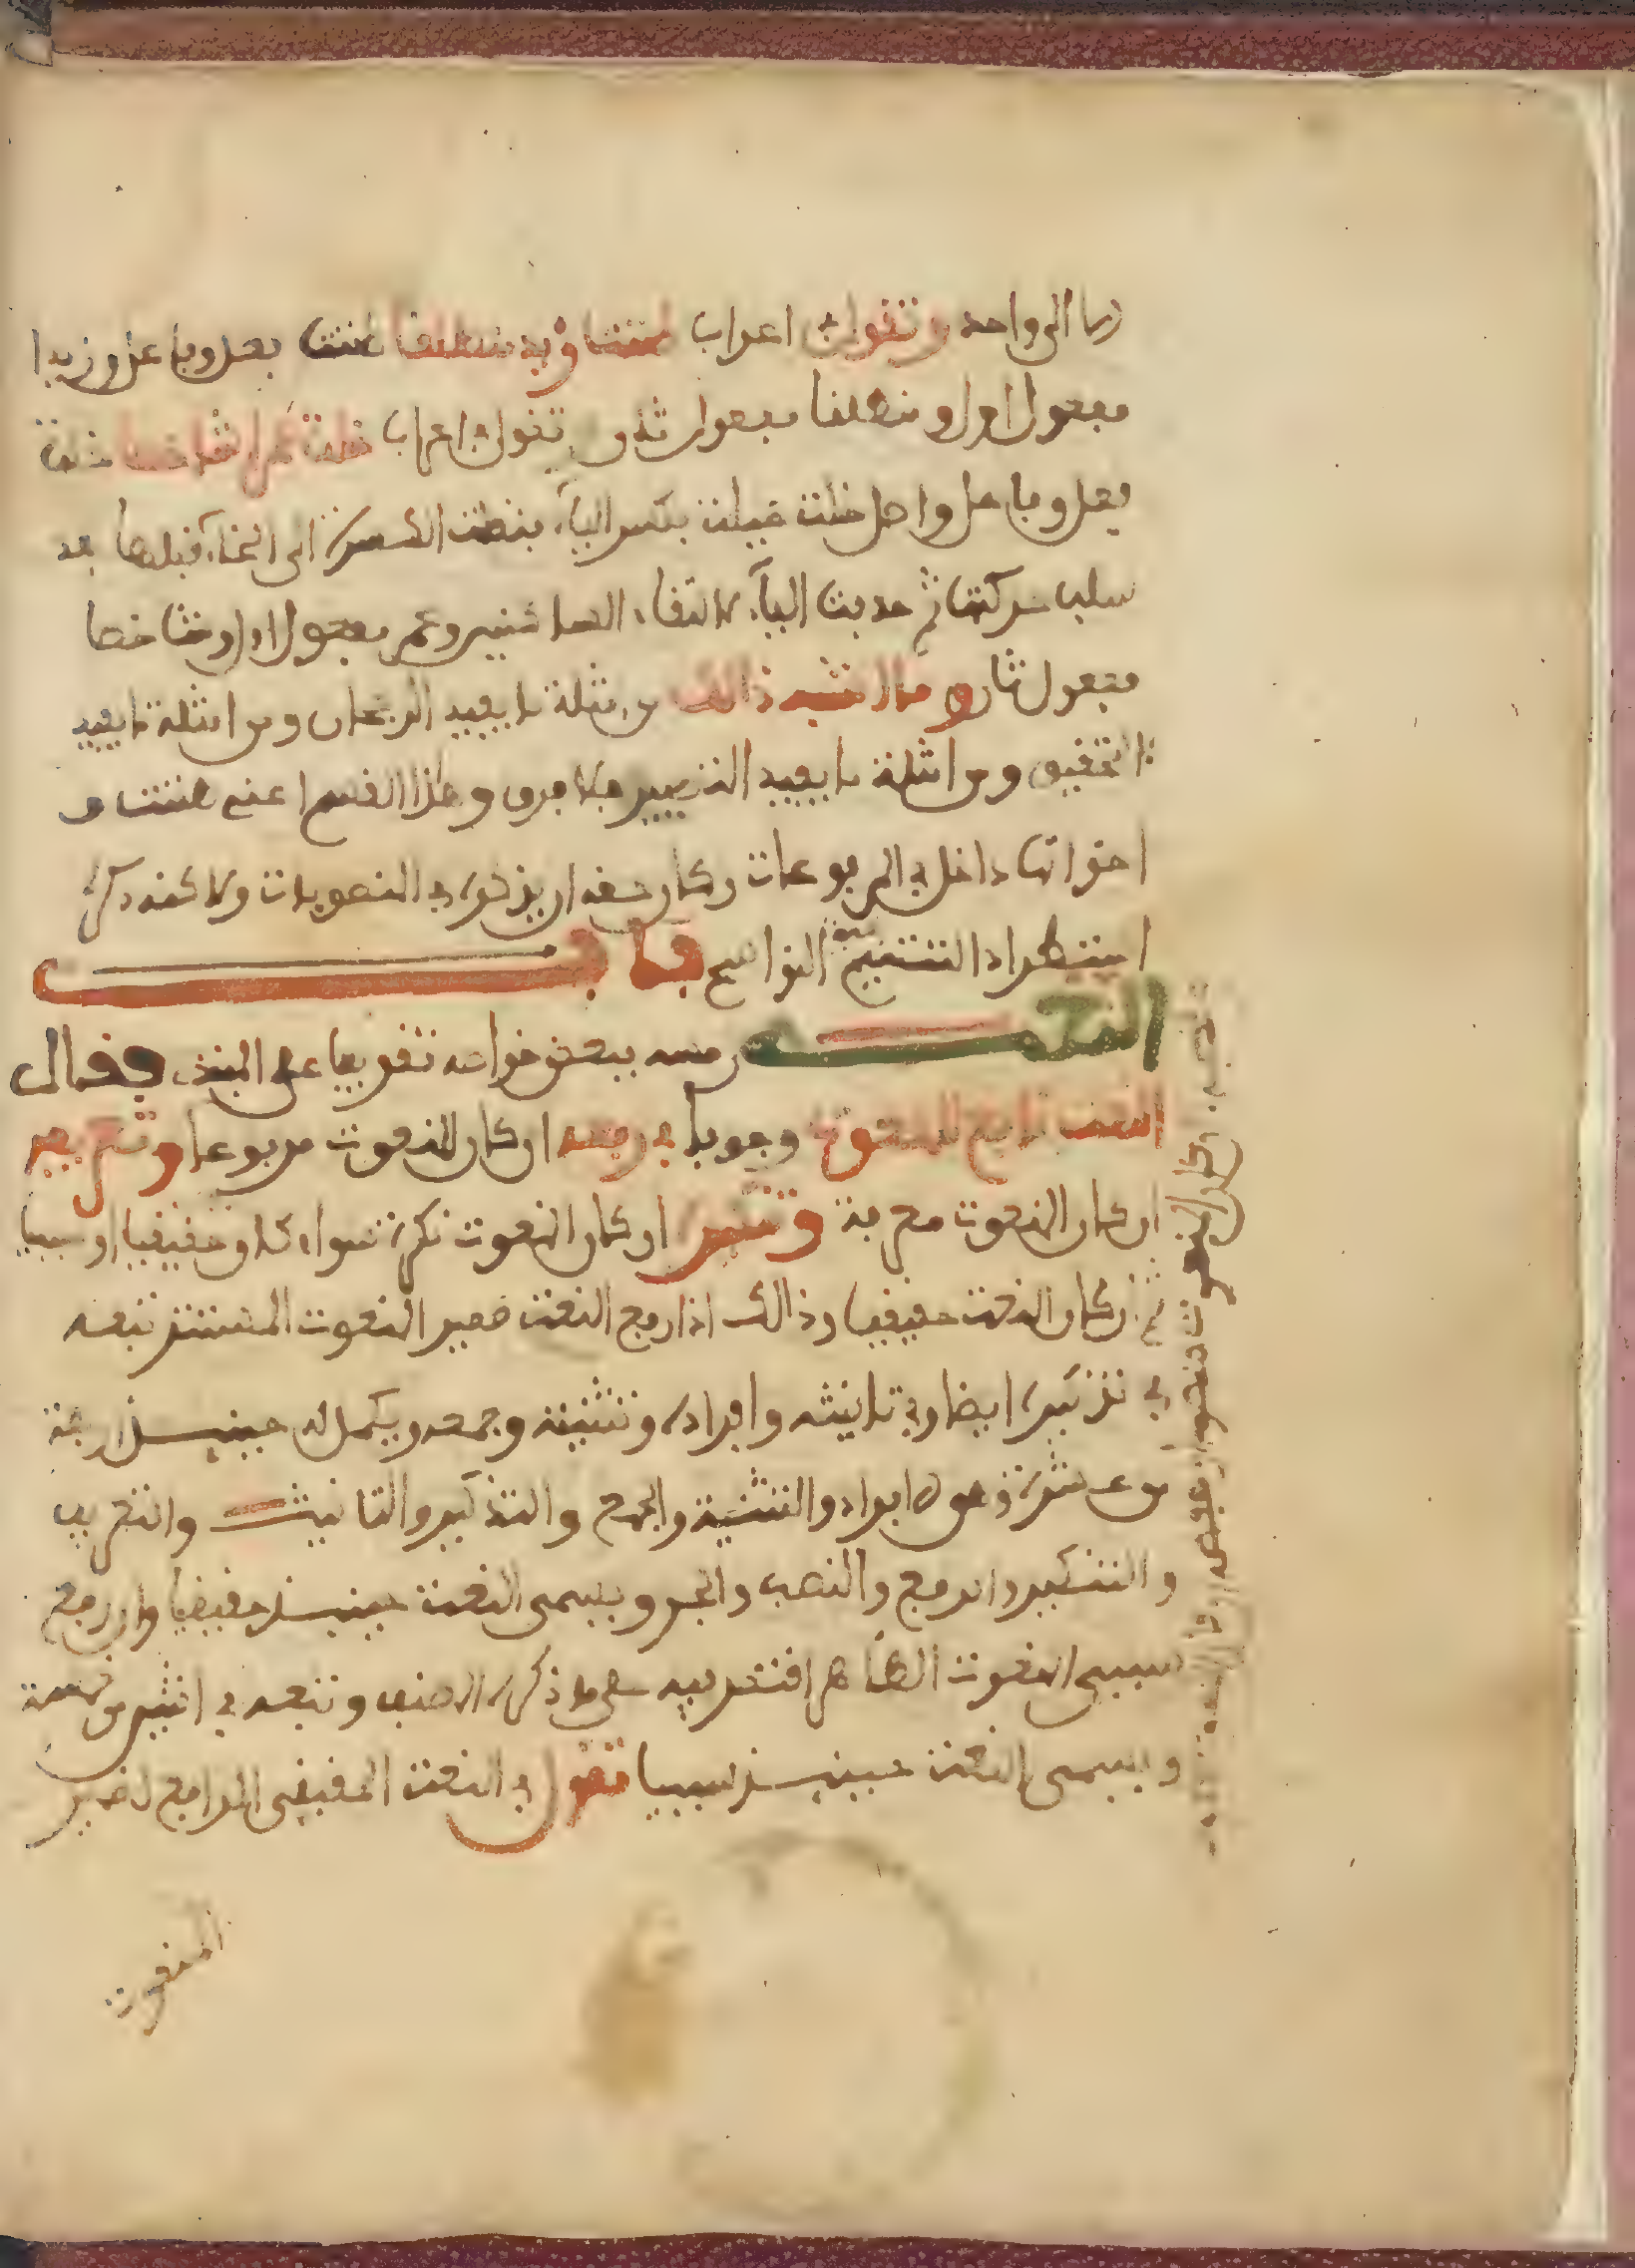 دها الى واحد وتقول في اعراب ظننت زيدا منطلقا ظننت فعل وفاعل وزيدا
مفعول اول ومنطلقا مفعول ثان وتقول في اعراب خلت عمرا شاخصا خلت
فعل وفاعل واصل خلت خيلت بكسر الياء فنقلت الكسرة الى الخاء قبلها بعد
سلب حركتها ثم حذفت الياء لالتقاء الساكنين وعمرا مفعول اول وشاخصا
مفعول ثان وما اشبه ذالك من امثلة ما يفيد الرجحان ومن امثلة ما يفيد
التحقيق ومن امثلة ما يفيد التصيير فلا فرق وهذا القسم اعني ظننت و
اخواتها داخل في المرفوعات وكان حقه ان يذكر في المنصوبات ولاكنه ذكره
استطرادا لتتميم بقية النواسخ باب
النعت رسمه ببعض خواصه تقريبا على المبتدي فقال
النعت تابع للمنعوت وجوبا في رفعه ان كان المنعوت مرفوعا وتعريفه
ان كان المنعوت معرفة وتنكيره ان كان المنعوت نكرة سواء كان حقيقيا او سببيا
ثم ان كان النعت حقيقيا وذالك اذا رفع النعت ضمير المنعوت المستتر تبعه
في تذكيره ايضا وفي تانيثه وافراده وتثنيته وجمعه ويكمل له حينئذ اربعة
من عشرة وهي الافراد والتثنية والجمع والتذكير والتانيث والتعريف
والتنكير والرفع والنصب والجر ويسمى النعت حينئذ حقيقيا وان رفع
سببي المنعوت الظاهر اقتصر فيه على ما ذكره المصنف وتبعه في اثنين من خمسة
ويسمى النعت حينئذ سببيا تقول في النعت الحقيقي الرافع لضمير
المنعوت